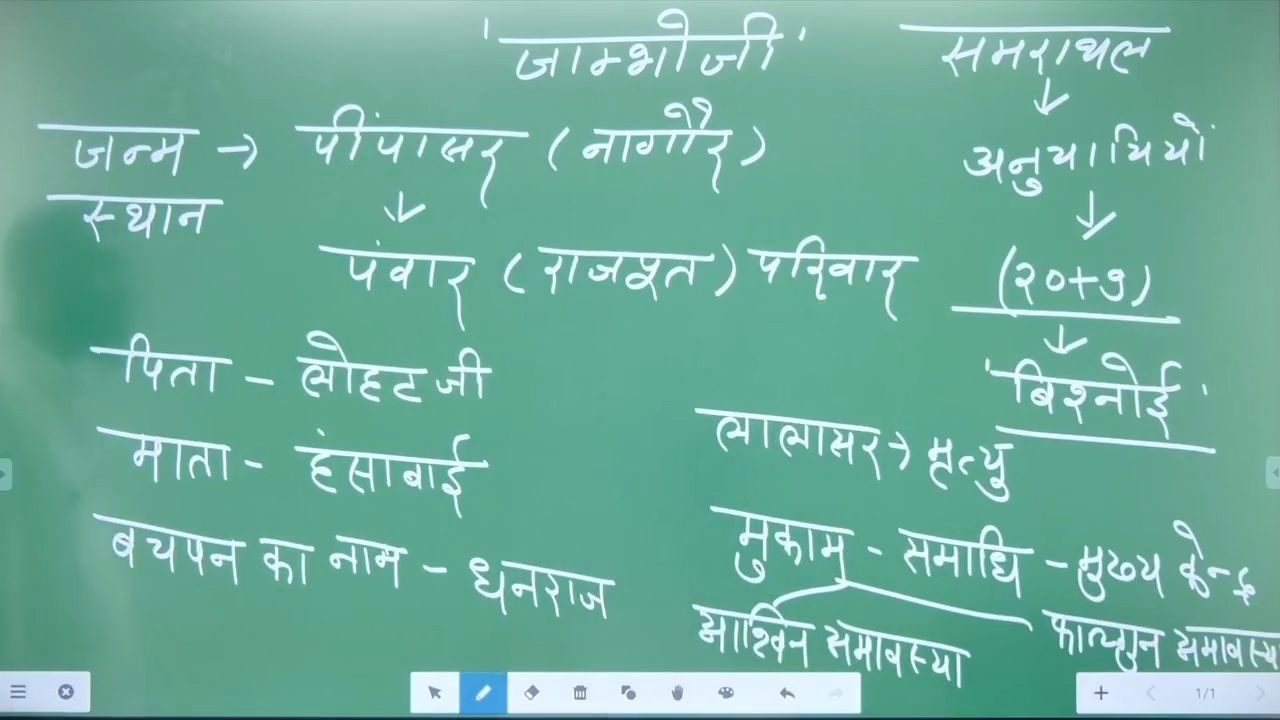 'जाम्भोजी'
जन्म → पींपासर (नागौर)
स्थान
↓
पंवार (राजपूत) परिवार
पिता – लोहट जी
माता – हंसाबाई
बचपन का नाम – धनराज
समराथल
↓
अनुयायियों
↓
(२०+९)
↓
'बिश्नोई'
लालासर → मृत्यु
मुकाम – समाधि – मुख्य केन्द्र
आश्विन अमावस्या फाल्गुन अमावस्या
1/1